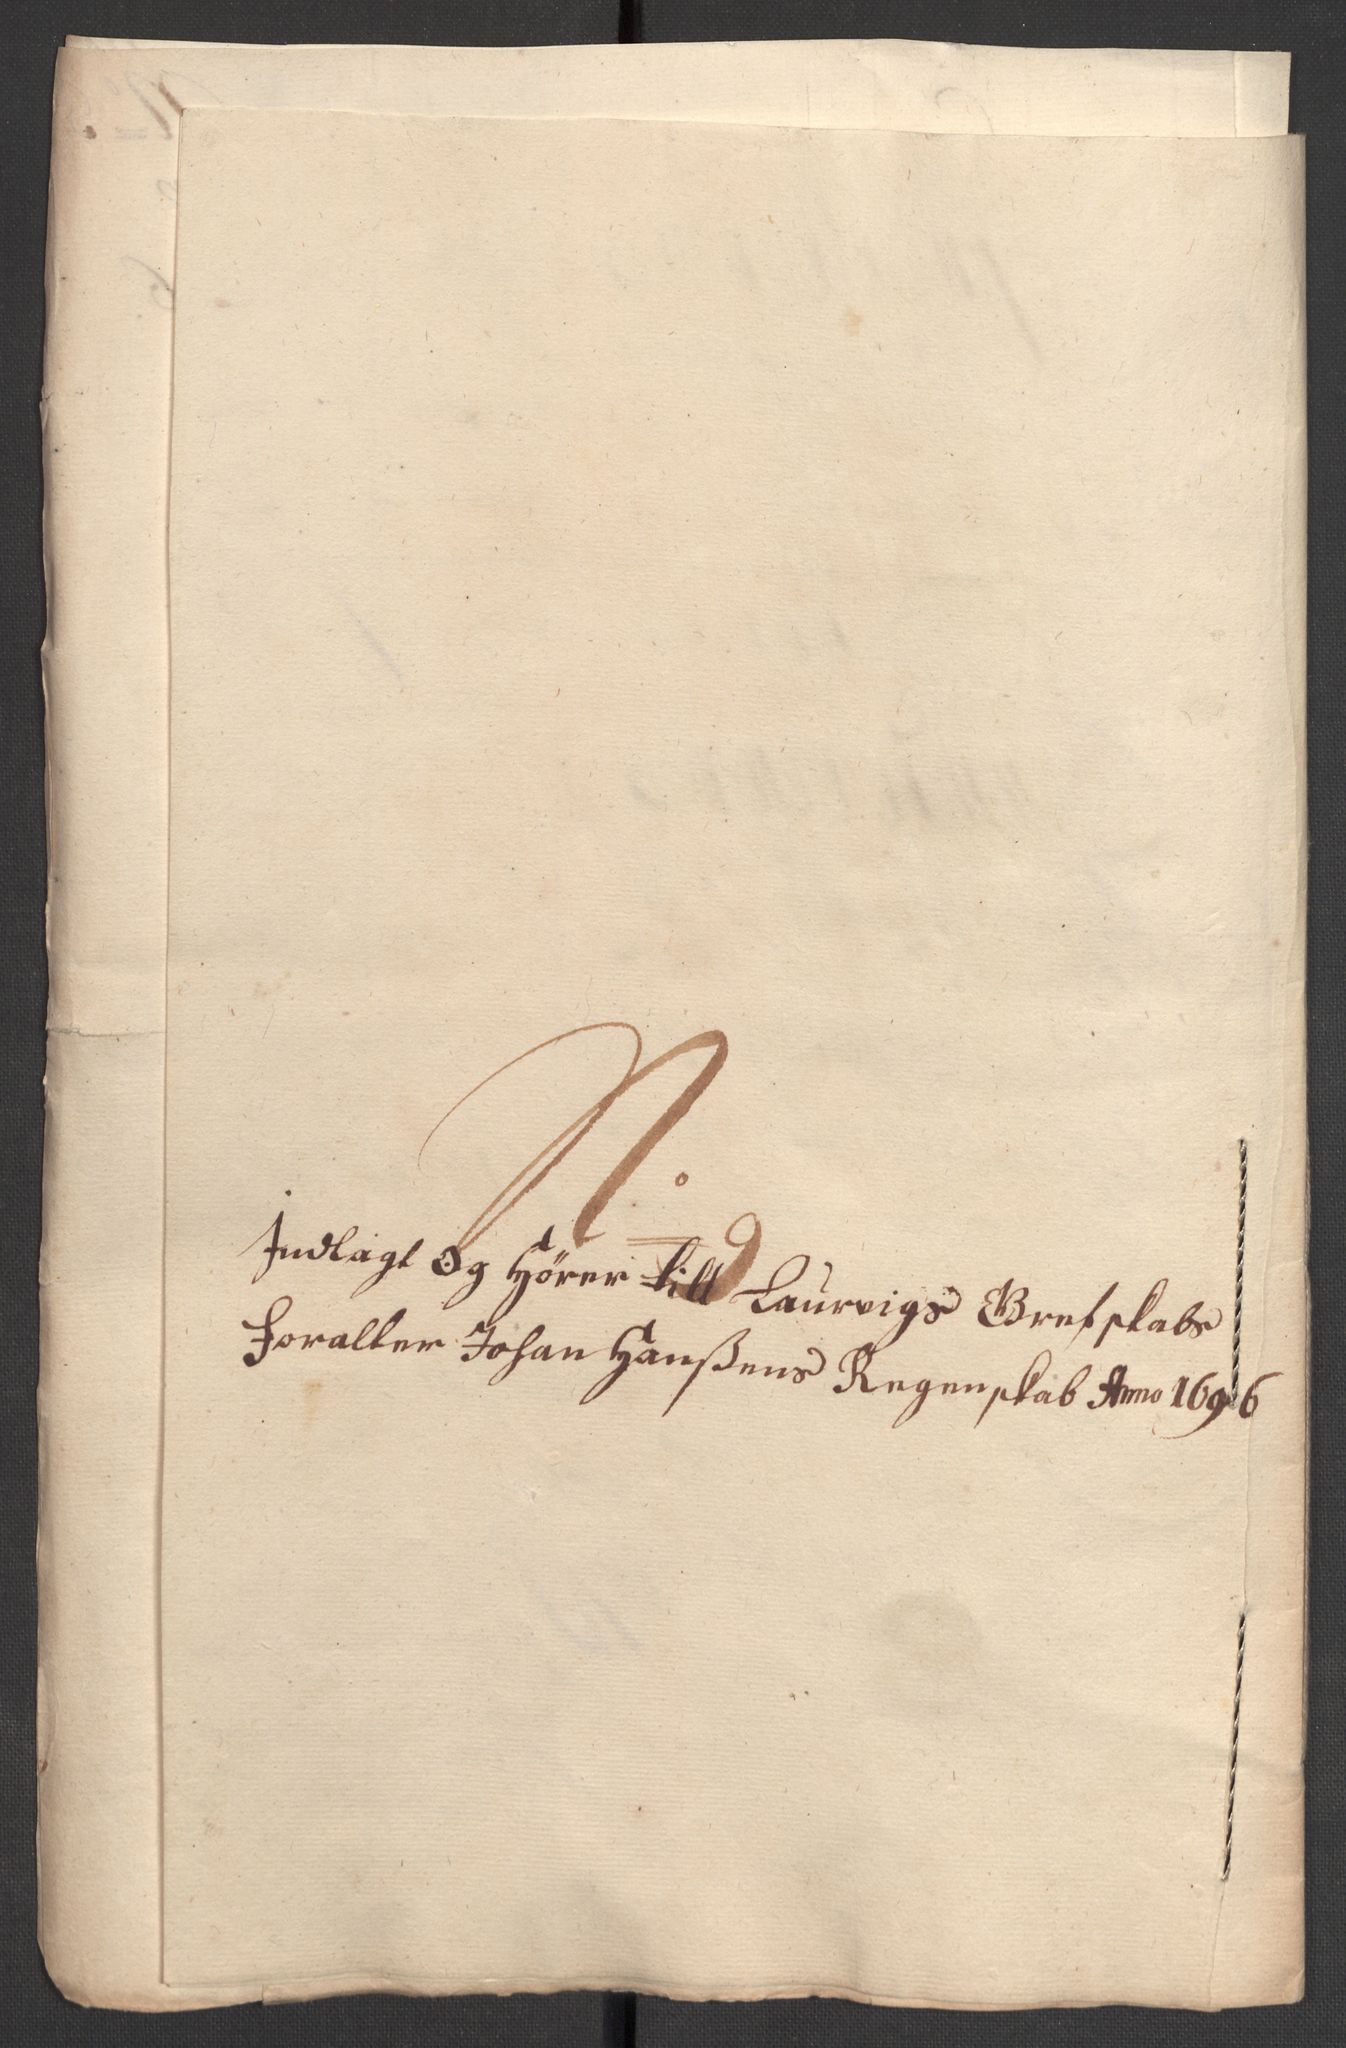 No 9
Indlagt Og Hörer till Laurvigs Grefskabs
Foralter Johan Hanßens Regenskab Anno 1696